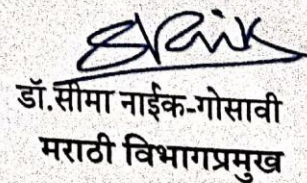 डॉ.सीमा नाईक-गोसावी
मराठी विभागप्रमुख